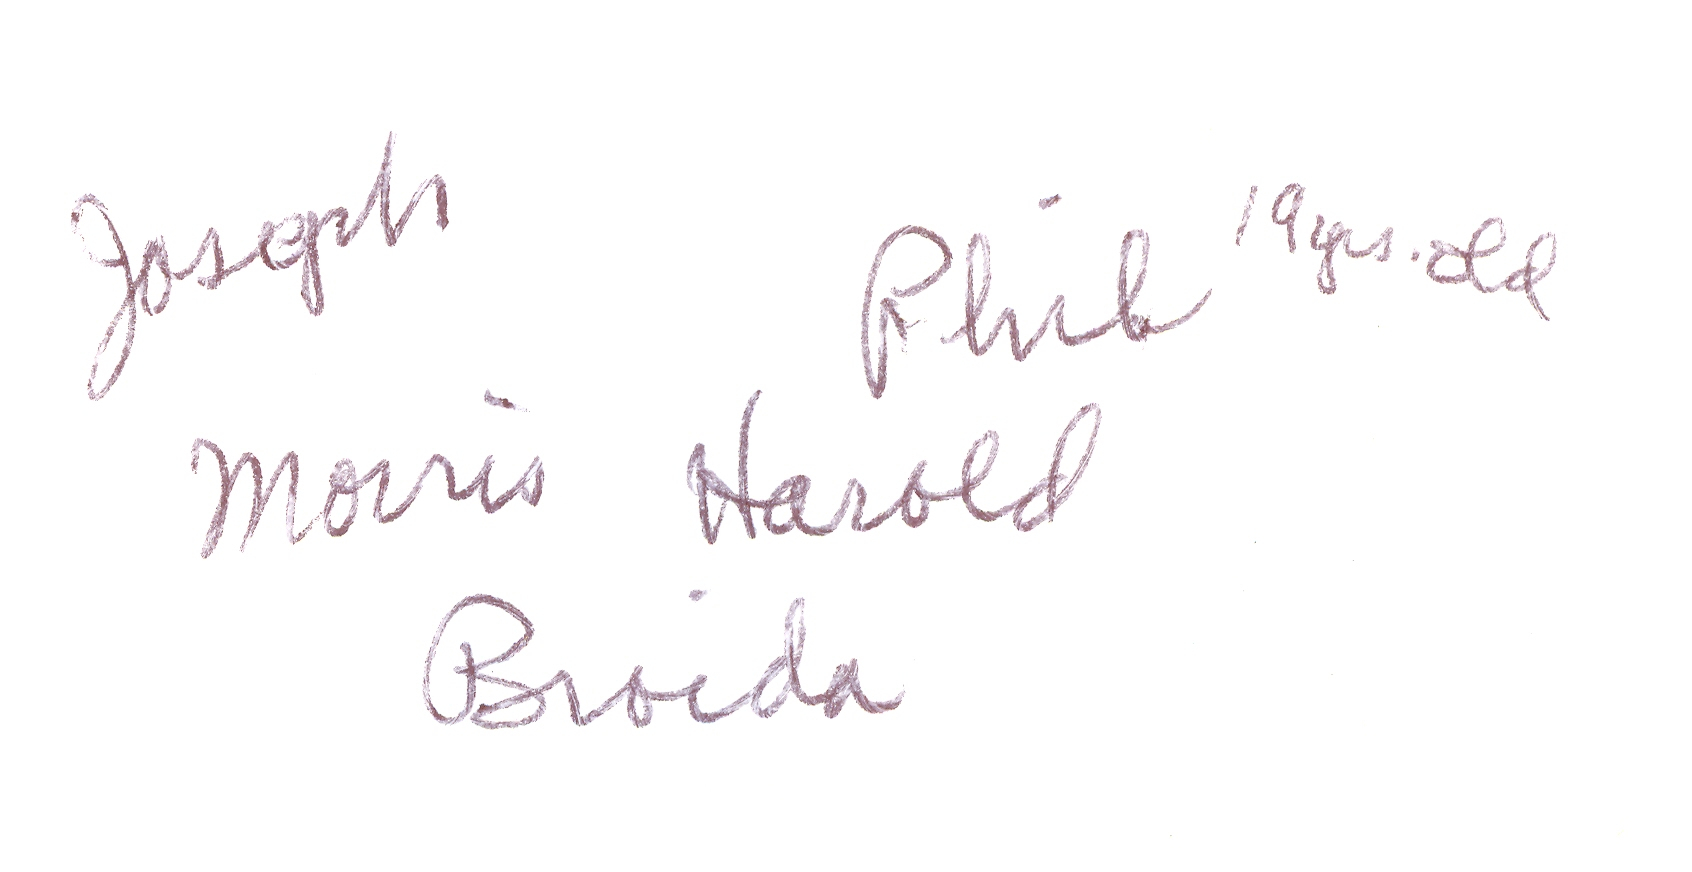 Joseph Phil 19 yrs. old
Morris Harold
Broida